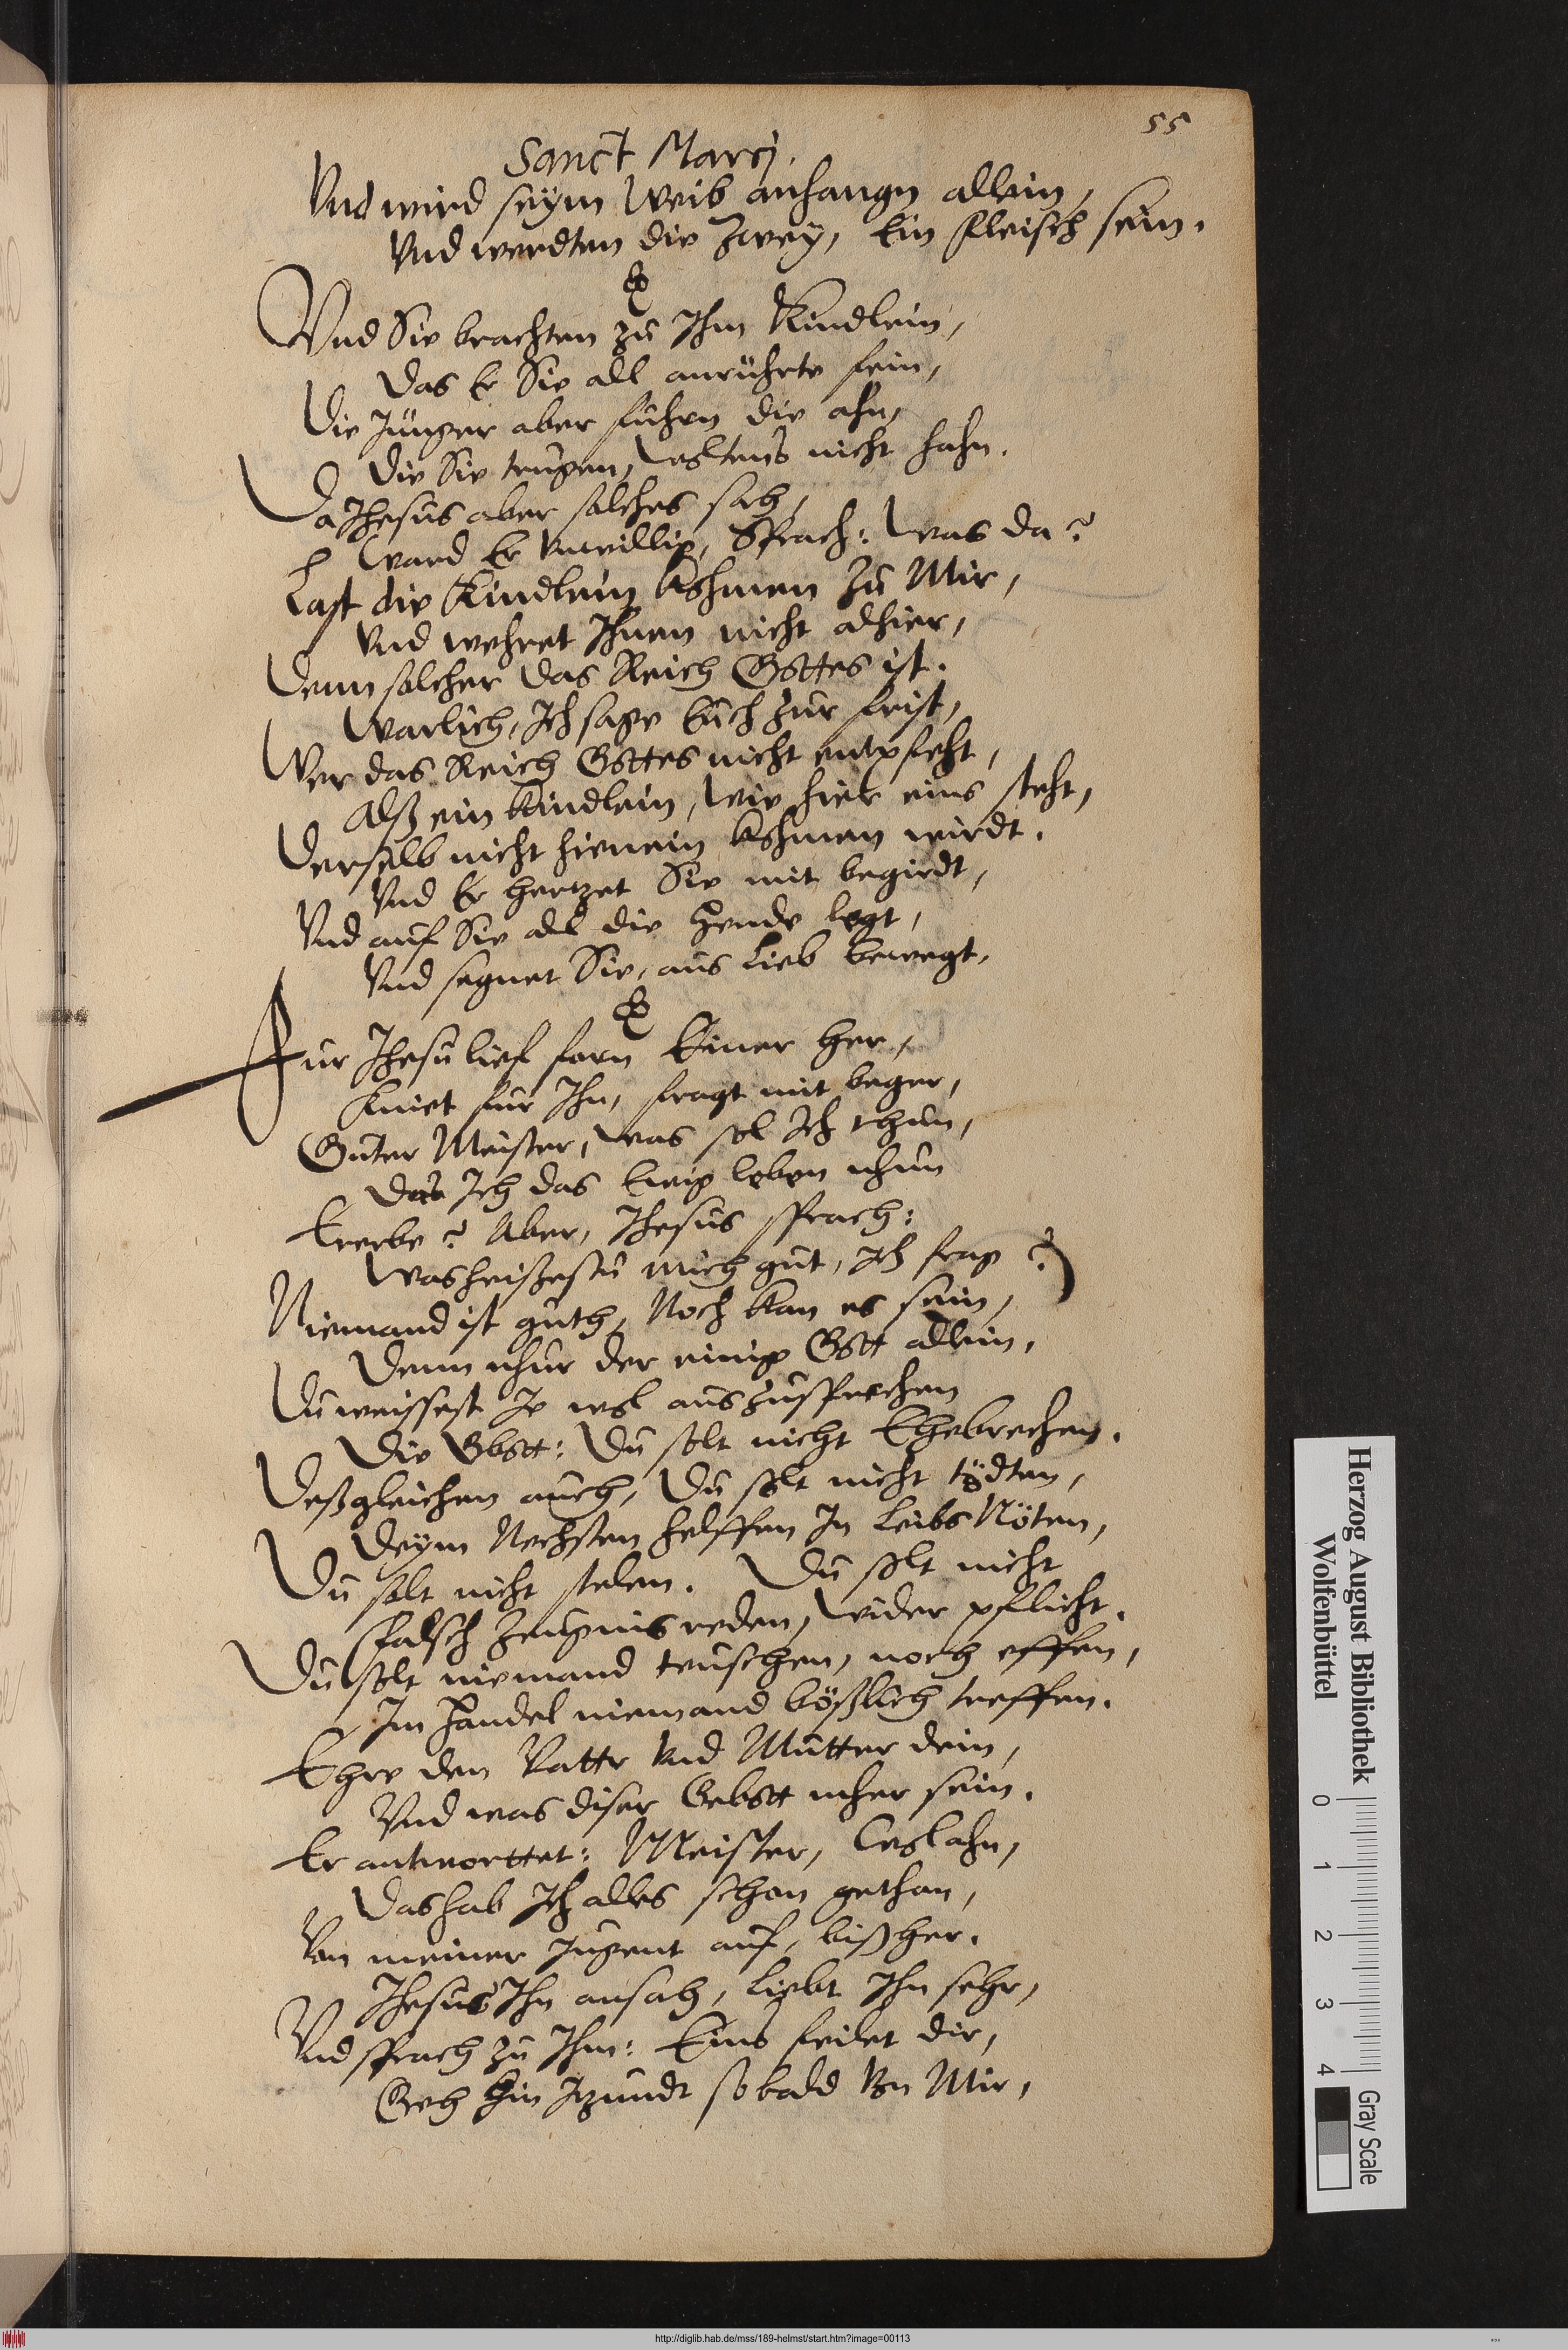 55
Sanct Marcj.
Vnd wird seym Weib anhangn allein,
Vnd werdten die Zwey, Ein Fleisch sein.
Vnd Sie brachten zu Ihm Kindlein,
Das Er Sie all anrührte fein,
Die Jünger aber fuhrn die ahn,
Die Sie trugen, woltens nicht hahn.
Da Jhesus aber solches sah,
Ward Er Vnwillig, Sprach: Was da?
Last die Kindlein kohmen zu Mir,
Vnd wehret Ihnen nicht alhier,
Denn solcher das Reich Gottes ist.
Warlich, Ich sage Euch zur frist,
Wer das Reich Gottes nicht entpfeht,
Alß ein Kindlein, wie hier eins steht,
Derselb nicht hienein kohmen wirdt.
Vnd Er hertzet Sie mit begirdt,
Vnd auf Sie all die Hende legt,
Vnd segnet Sie, aus Lieb bewegt.
Fur Jhesu lief forn Einer her,
Kniet fur Ihn, fragt mit beger,
Guter Meister, was sol Ich thun,
Das Ich das Ewig leben nhun
Ererbe? Aber, Jhesus sprach:
Was heißestu mich gut, Ich frag?
Niemand ist guth, Noch kan es sein,
Denn nhur der einig Gott allein.
Du weissest Je wol auszusprechen
Die Gbott: Du solt nicht Ehebrechen.
Deßgleichen auch, Du solt nicht tödten,
Deym Nechsten helffen In Leibs Nöten,
Du solt nicht stelen. Du solt nicht
Falsch Zeugnis reden, wider pflicht.
Du solt niemand teuschen, noch effen,
Im Handel niemand bößlich treffen.
Ehre den Vattr Vnd Mutter dein,
Vnd was diser Gebott mher sein.
Er antworttet: Meister, Wolahn,
Das hab Ich alles schon gethan,
Von meiner Jugent auf, bißher.
Jhesus Ihn ansah, liebt Ihn sehr,
Vnd sprach zu Ihm: Eins feilet dir,
Geh hin Itzundt so bald Von Mir,
Herzog August Bibliothek
Wolfenbüttel
0 1 2 3 4
Gray Scale
http://diglib.hab.de/mss/189-helmst/start.htm?image=00113